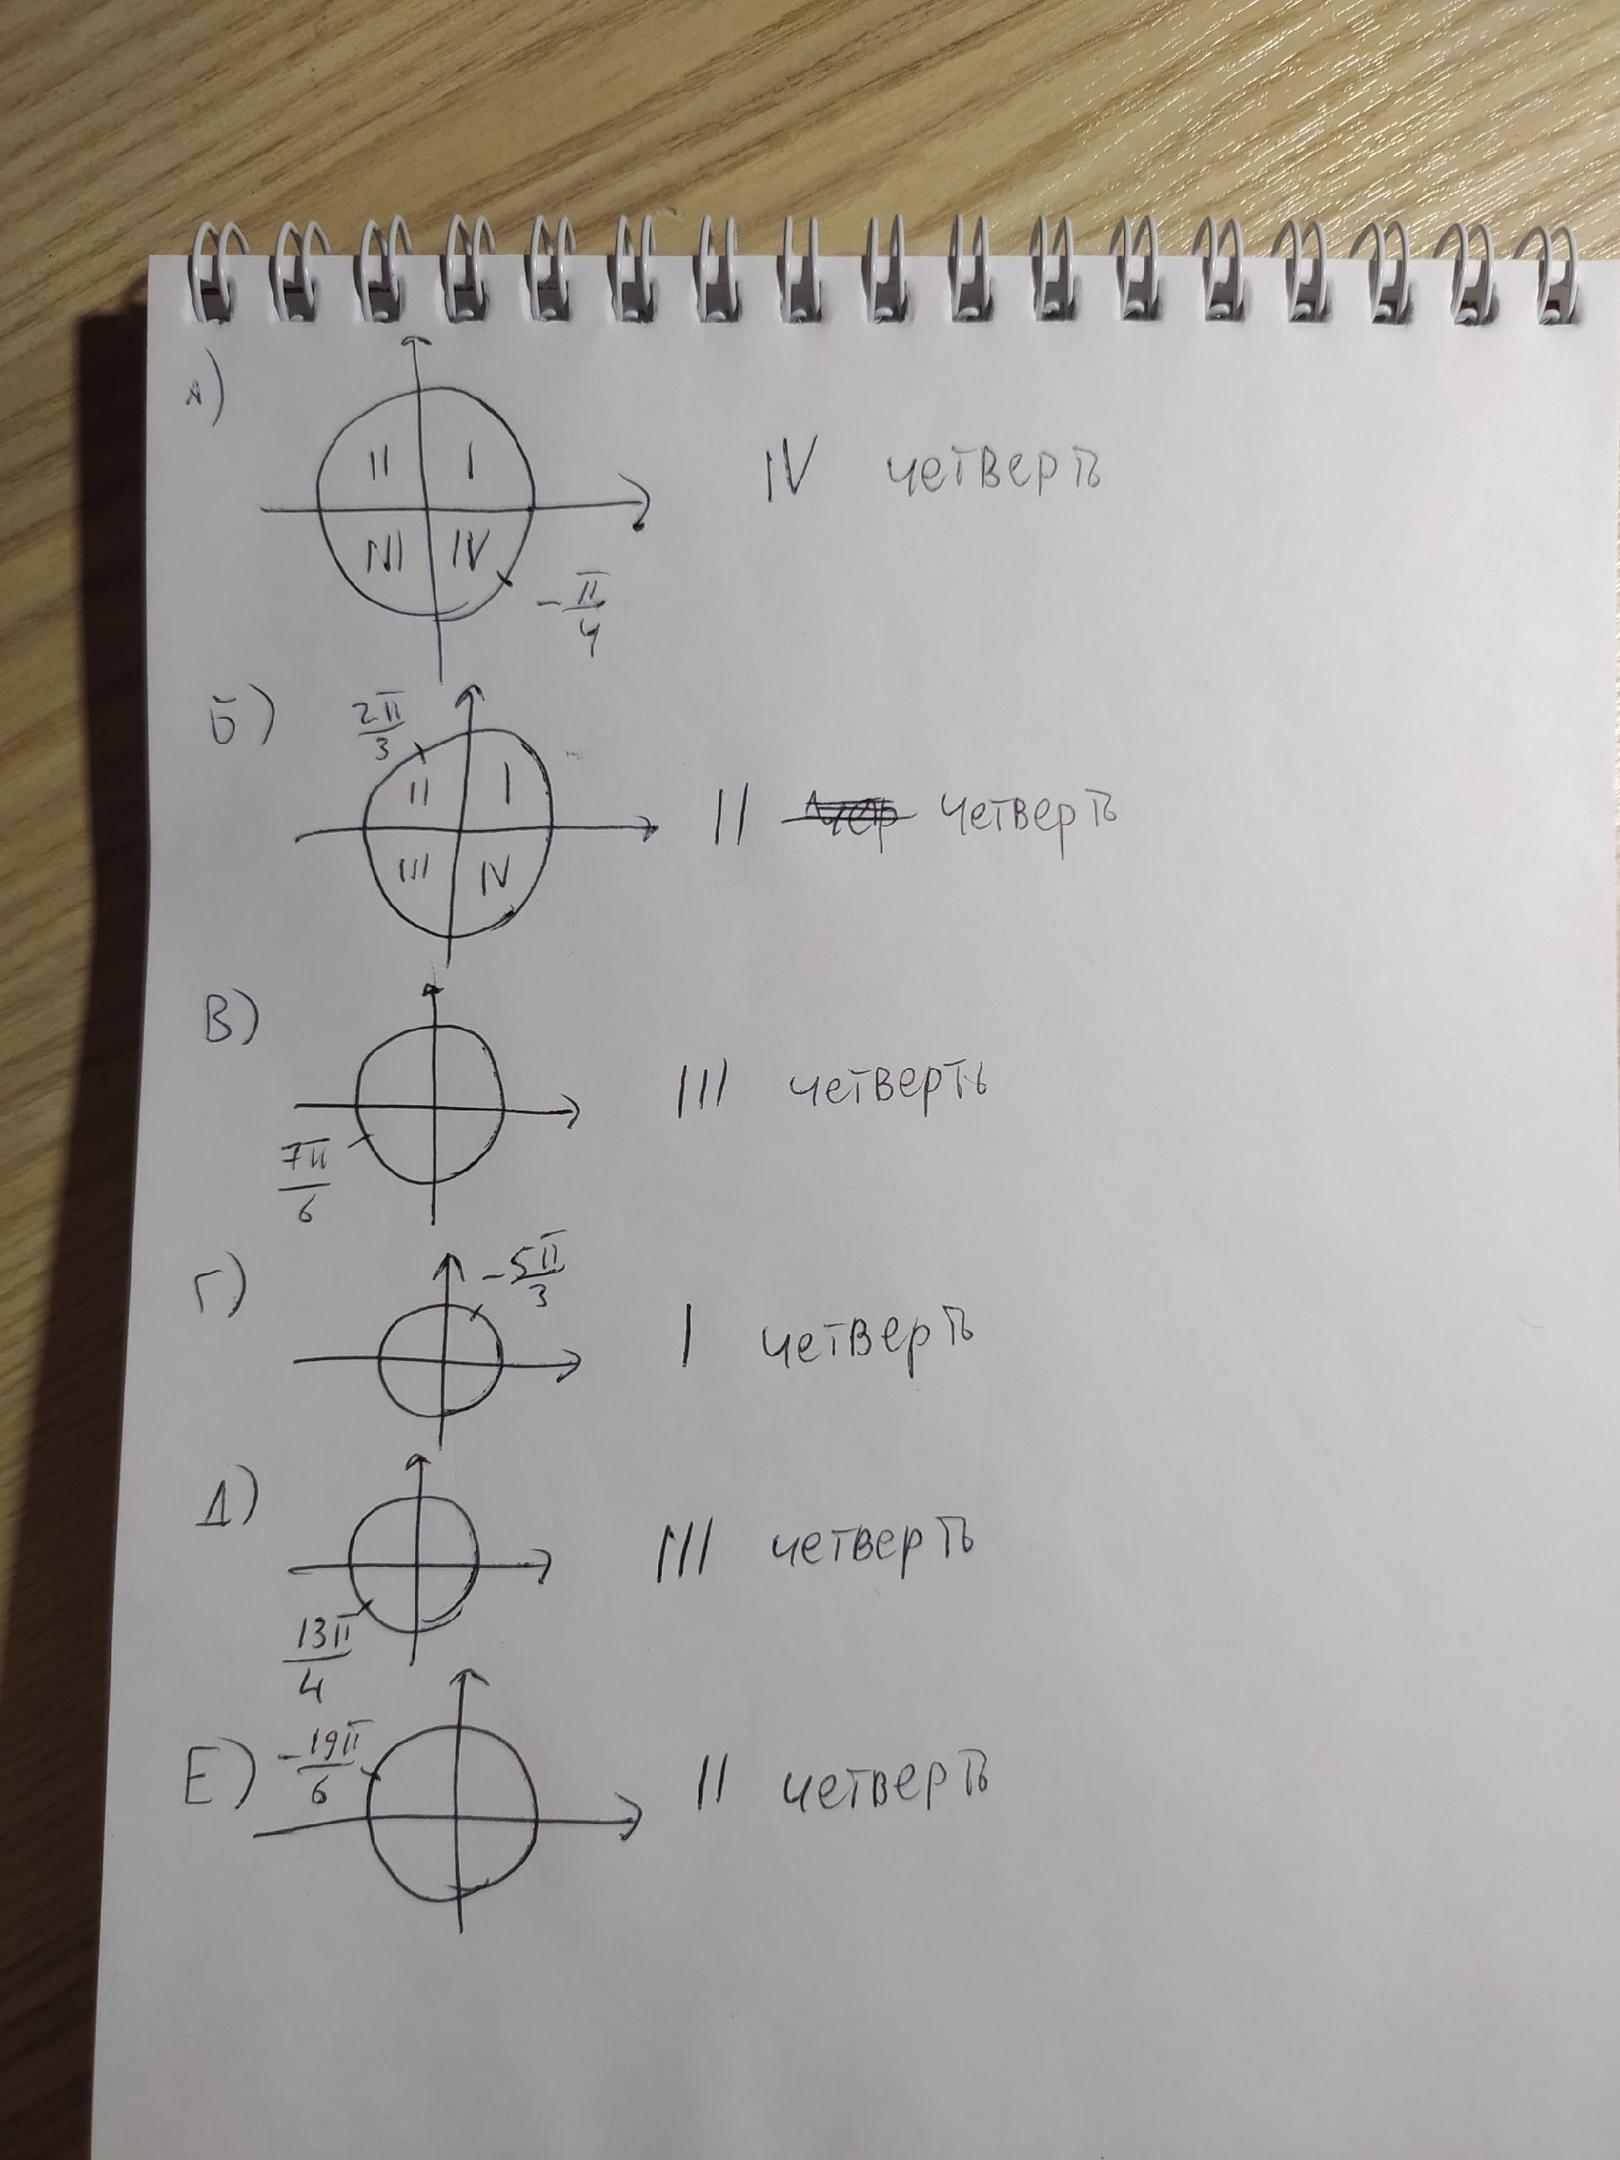 А)
II I
III IV
-π/4
IV четверть
Б) 2π/3
II I
III IV
II четверть
В)
7π/6
III четверть
Г) -5π/3
I четверть
Д)
13π/4
III четверть
Е) -19π/6
II четверть